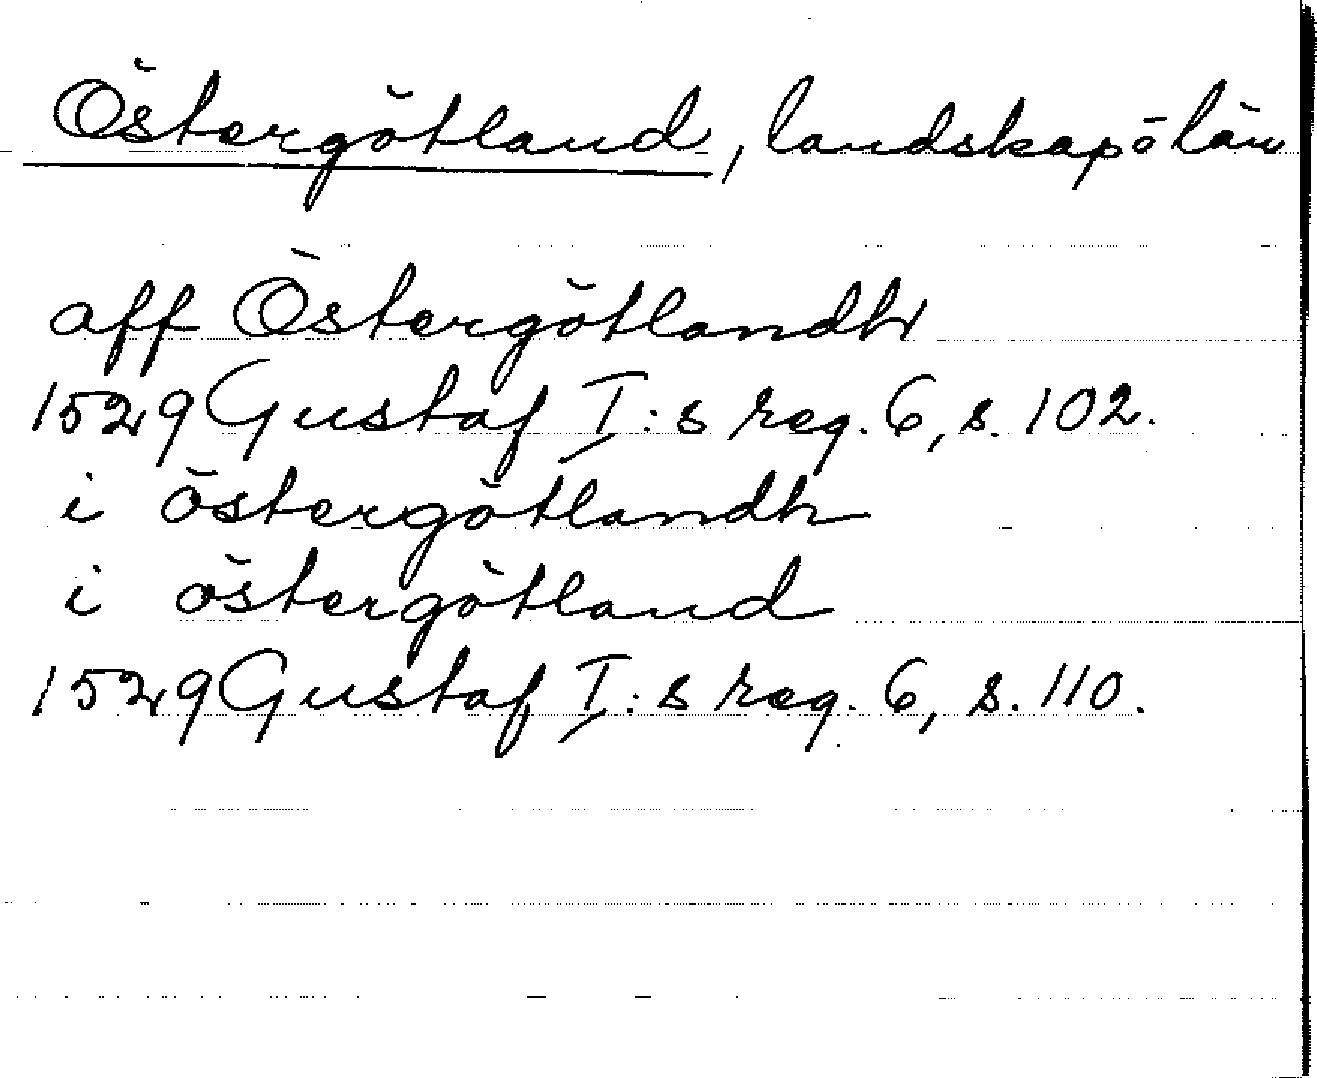 Östergötland, landskap ō län
aff Östergötlandh
1529 Gustaf I:s reg. 6, s. 102.
i östergötlandh
i östergötland
1529 Gustaf I:s reg. 6, s. 110.